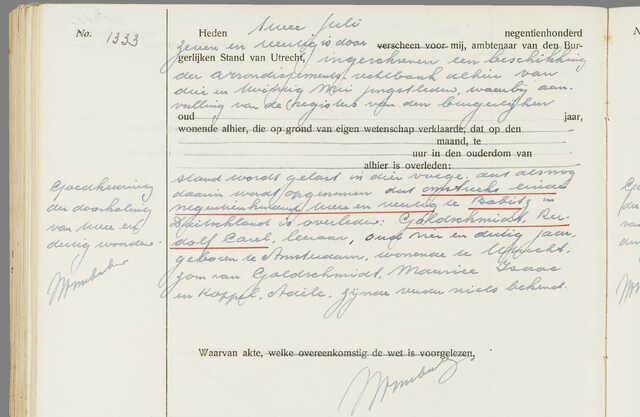 No. 1333
Heden twee Juli negentienhonderd
zeven en veertig is door verscheen voor mij, ambtenaar van den Bur-
gerlijken Stand van Utrecht, ingeschreven een beschikking
der arrondissements-rechtbank alhier van
drie en twintig Mei jongstleden, waarbij aan-
vulling van de registers van den burgerlijken
oud jaar,
wonende alhier, die op grond van eigen wetenschap verklaarde, dat op den
maand, te
uur in den ouderdom van
alhier is overleden:
stand wordt gelast in dier voege, dat alsnog
daarin wordt opgenomen dat omstreeks einde
negentienhonderd twee en veertig te Babitz in
Duitschland is overleden: Goldschmidt, Ru-
dolf Carel, leeraar, oud en dertig jaar,
geboren te Amsterdam, wonende te Utrecht,
zoon van Goldschmidt, Maurice Isaac
en Koppel, Adèle, zijnde verder niets bekend.
Goedkeuring
der doorhaling
van twee en
dertig woorden.
Waarvan akte, welke overeenkomstig de wet is voorgelezen,